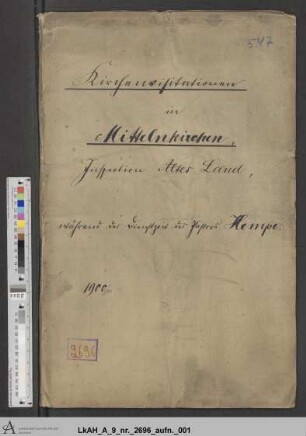 547
Kirchenvisitationen
in
Mittelnkirchen,
Inspection Altes Land,
während der Dienstzeit des Pastors Hempe.
1900
2696
LkAH_A_9_nr._2696_aufn._001